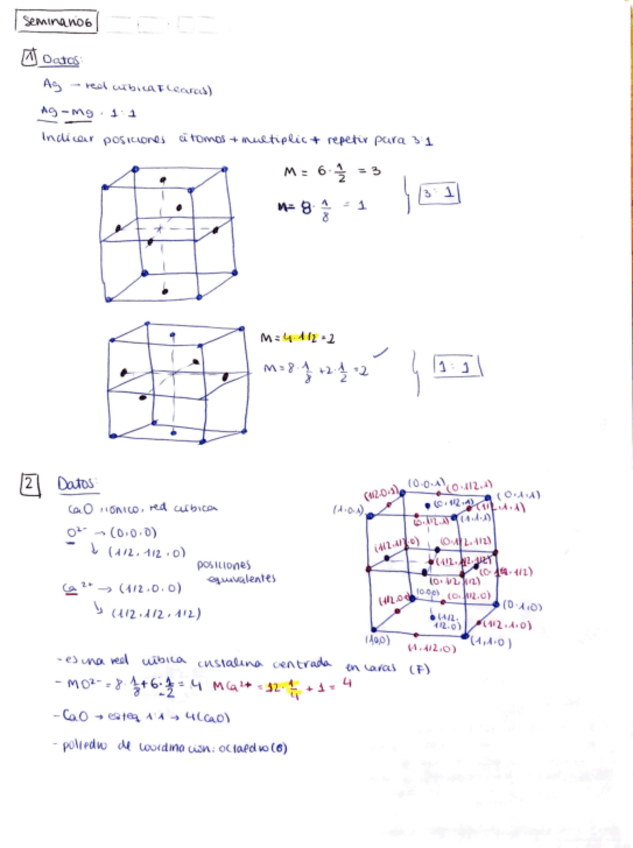 Seminario 6
1 Datos:
Ag → red cúbica F (caras)
Ag-Mg · 1:1
Indicar posiciones átomos + multiplic + repetir para 3:1
M = 6 · 1/2 = 3
M = 8 · 1/8 = 1
3:1
M = 4 · 1/2 = 2
M = 8 · 1/8 + 2 · 1/2 = 2 ✓
1:1
2 Datos:
CaO iónico, red cúbica
O²⁻ → (0,0,0)
↳ (1/2, 1/2, 0)
posiciones
equivalentes
Ca²⁺ → (1/2, 0, 0)
↳ (1/2, 1/2, 1/2)
(0,0,1)
(0,1/2,1)
(1/2,0,1)
(0,1,1)
(1,0,1)
(1,1,1)
(1/2,1,1)
(0,1/2,1/2)
(0,0,0)
(0,1/2,0)
(0,1,0)
(1/2,
1/2,0)
(1/2,1,0)
(1,0,0)
(1,1/2,0)
(1,1,0)
- es una red cúbica cristalina centrada en caras (F)
- M O²⁻ = 8 · 1/8 + 6 · 1/2 = 4 M Ca²⁺ = 12 · 1/4 + 1 = 4
- CaO → esteq 1:1 → 4(CaO)
- poliedro de coordinación: octaedro (6)